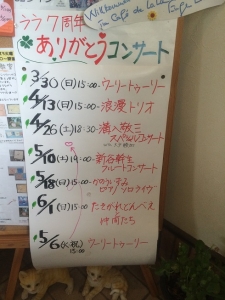 ララ7周年
ありがとうコンサート
3/30(日)15:00- ワーリートゥーリー
4/13(日)15:00- 浪漫トリオ
4/26(土)18:30- 溝入敬三
スペシャルコンサート
5/10(土)14:00- 新谷幹生
フルートコンサート
5/18(日)15:00-
ピアノソロライヴ
6/1(日)15:00 たそがれでんべえ
仲間たち
5/6(火・祝) ワーリートゥーリー
15:00